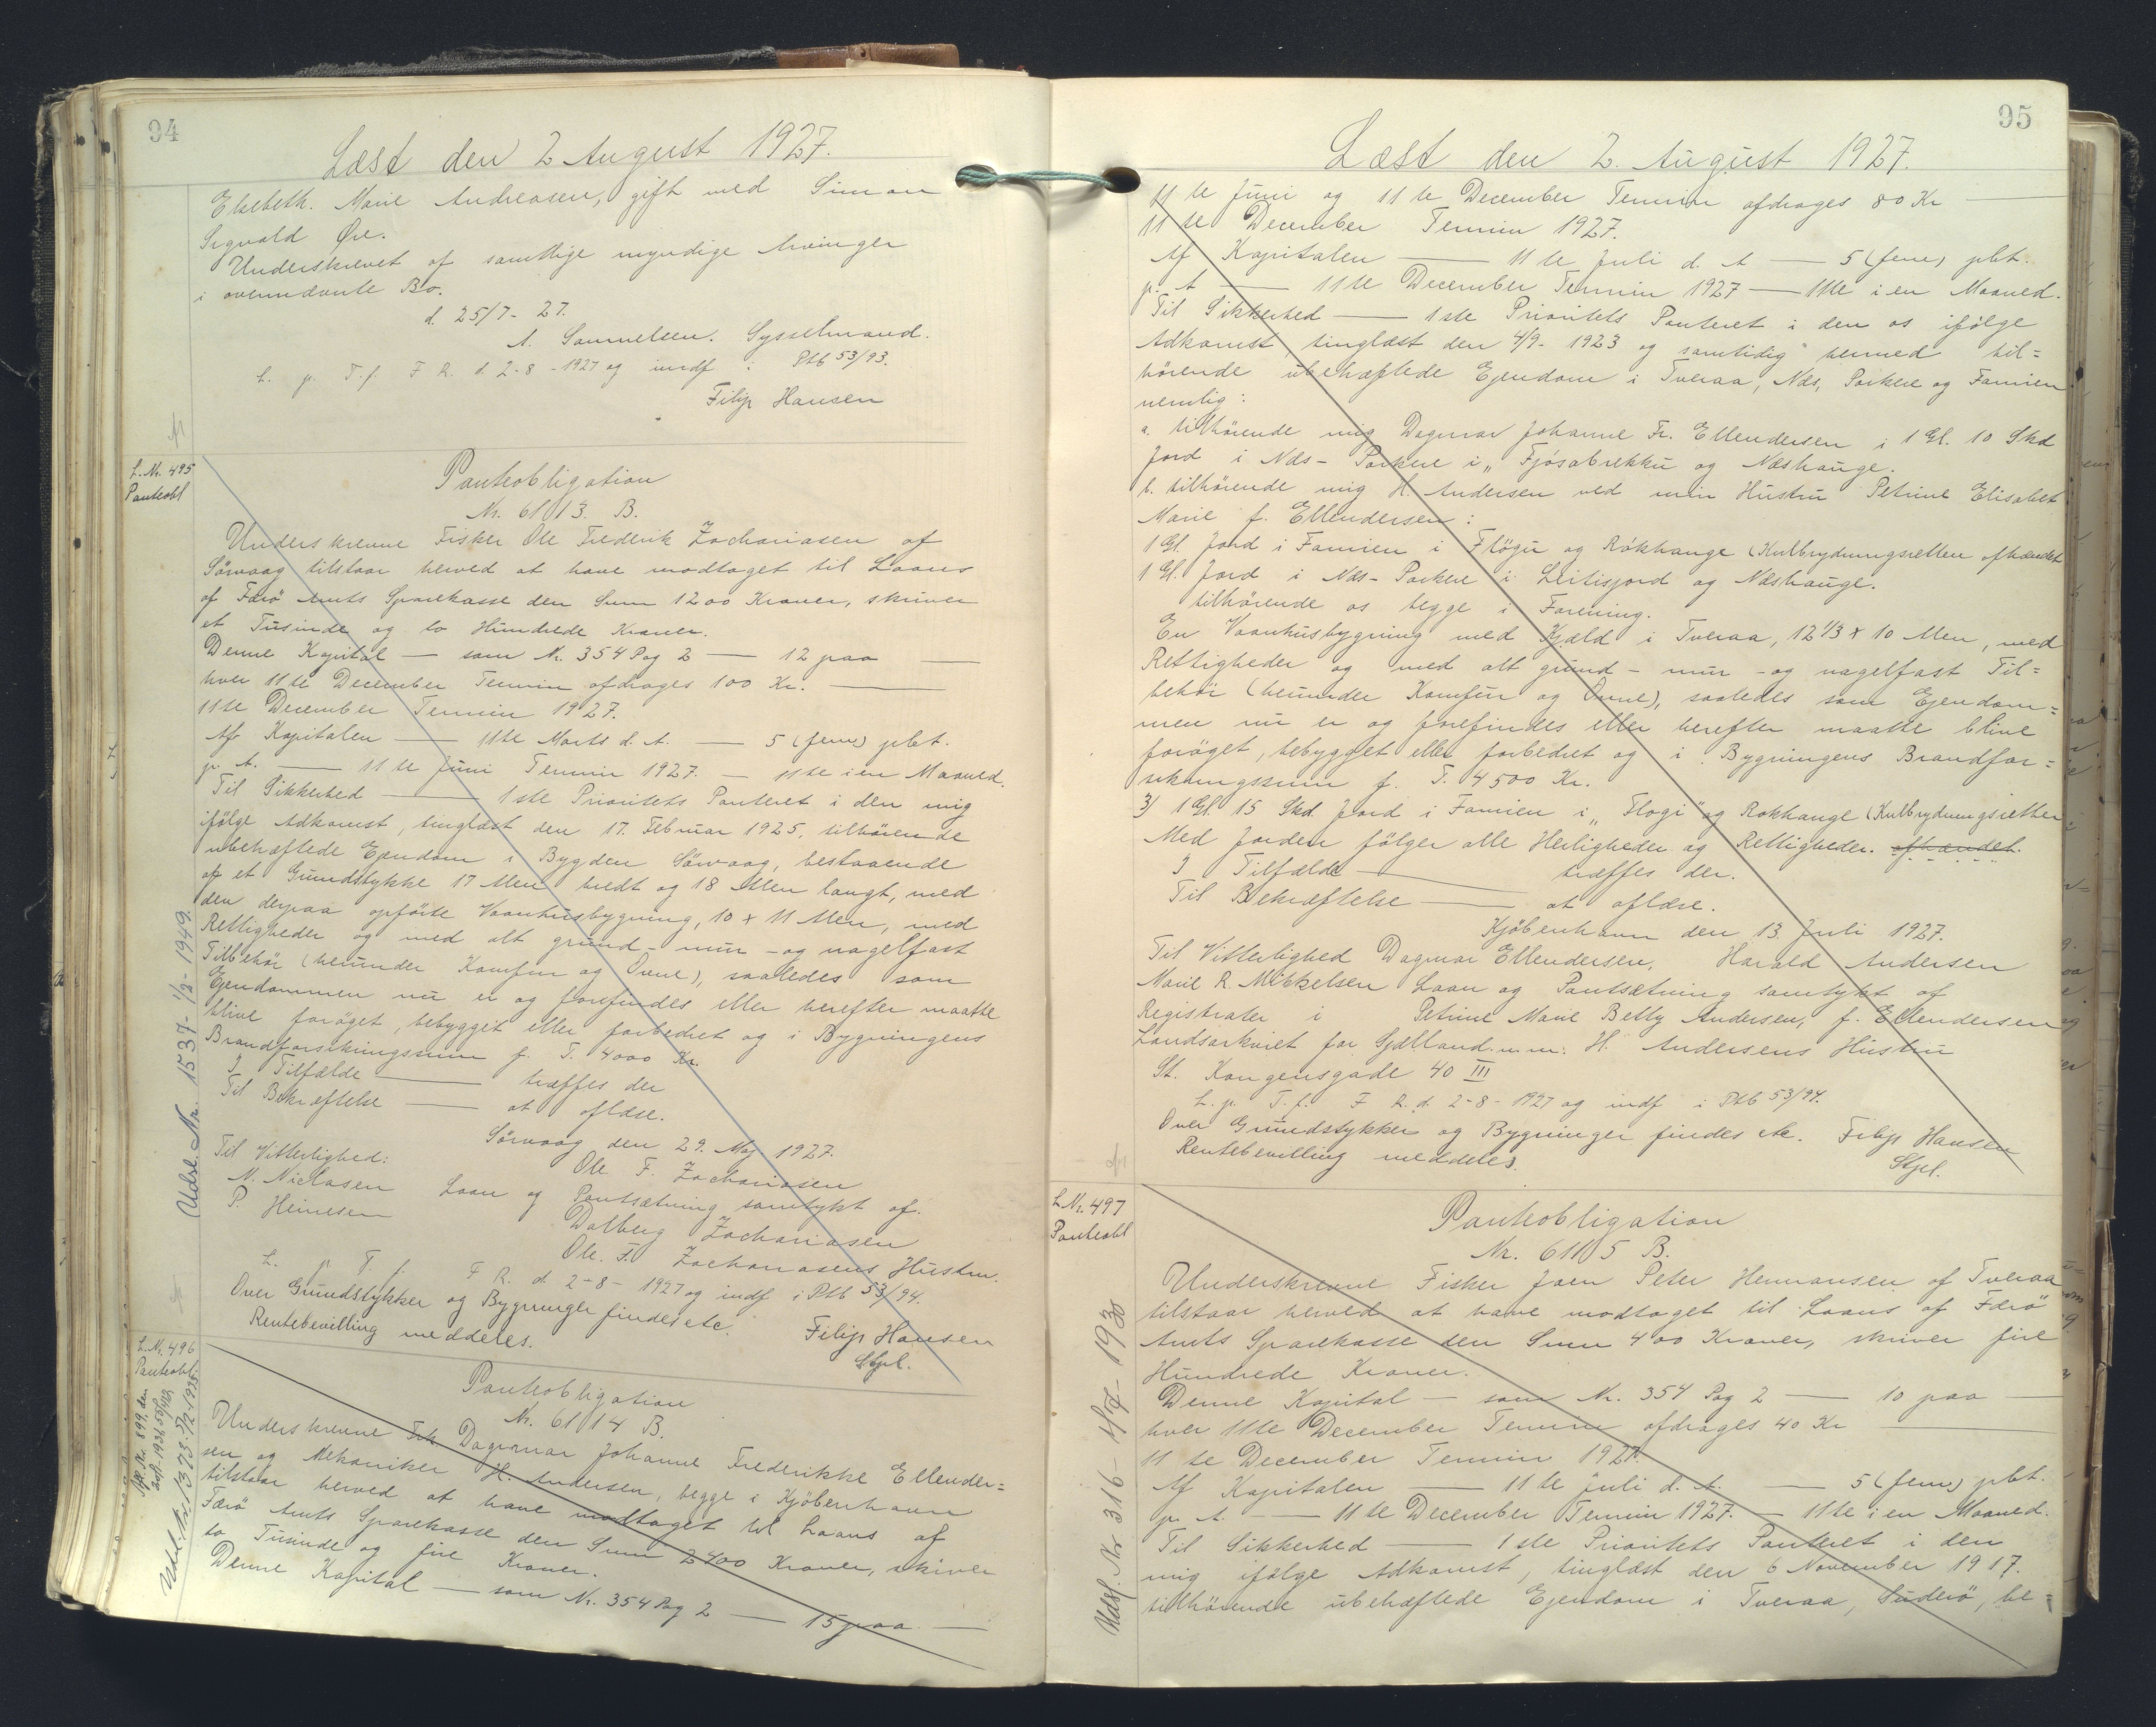 94
Læst den 2 August 1927.
Elsebeth. Marie Andreasen, gift med Simon
Sigvald Øre.
Underskrevet af samtlige myndige Arvinger
i ovennævnte Bo.
d. 25/7- 27.
A. Samuelsen. Sysselmand.
L. p. T. f. F R. d. 2-8-1927 og indf i Ptb 53/93.
Filip Hansen
L. Nr. 495
Panteobl
Panteobligation
Nr. 61013. B.
Underskrevne Fisker Ole Frederik Zachariasen af
Sörvaag tilstaar herved at have modtaget til Laans
af Færö Amts Sparekasse den Sum 1200 Kroner, skriver
et Tusinde og to Hundrede Kroner.
Denne Kapital — som Nr. 354 Pag 2 — 12 paa —
hver 11te December Termin afdrages 100 Kr. —
11te December Termin 1927.
Af Kapitalen — 11te Marts d. A. — 5 (fem) pbt.
p. A. — 11te Juni Termin 1927. — 11te i en Maaned.
Til Sikkerhed — 1ste Prioritets Panteret i den mig
ifölge Adkomst, tinglæst den 17. Februar 1925, tilhörende
ubehæftede Ejendom i Bygden Sörvaag, bestaaende
af et Grundstykke 17 Alen bredt og 18 Alen langt, med
den derpaa opförte Vaanhusbygning, 10 x 11 Alen, med
Rettigheder og med alt grund- mur- og nagelfast
Tilbehör (herunder Komfur og Ovne), saaledes som
Ejendommen nu er og forefindes eller herefter maatte
blive foröget, bebygget eller forbedret og i Bygningens
Brandforsikringssum f. T. 4000 Kr.
I Tilfælde — træffes der
Til Bekræftelse — at aflæse.
Sörvaag den 29. Maj 1927.
Til Vitterlighed: Ole F. Zachariasen
N. Niclasen Laan og Pantsætning samtykt af.
P. Heinesen Dalberg Zachariasen
Ole. F. Zachariasens Hustru.
L. p. T. f. F R. d. 2-8-1927 og indf i Ptb 53/94.
Over Grundstykker og Bygninger findes etc. Filip Hansen
Rentebevilling meddeles. Stpl.
Udsl. Nr. 1537- 1/2- 1949.
L. Nr. 496
Panteobl.
Udsl. Nr. 1373. 5/12-1935
Panteobligation
Nr. 61014 B.
Underskrevne Frk. Dagmar Johanne Frederikke Ellender=
sen og Mekaniker H. Andersen, begge i Kjöbenhavn
tilstaar herved at have modtaget til Laans af
Færö Amts Sparekasse den Sum 2400 Kroner, skriver
to Tusinde og fire Kroner.
Denne Kapital — som Nr. 354 Pag 2 — 15 paa —
95
Læst den 2. August 1927.
11te Juni og 11te December Termin afdrages 80 Kr —
11te December Termin 1927.
Af Kapitalen — 11te Juli d. A — 5 (fem) pbt.
p. A — 11te December Termin 1927 — 11te i en Maaned.
Til Sikkerhed — 1ste Prioritets Panteret i den os ifölge
Adkomst, tinglæst den 4/9- 1923 og samtidig hermed til=
hörende ubehæftede Ejendom i Tveraa, Næs, Porkere og Famien
nemlig:
a. tilhörende mig Dagmar Johanne Fr. Ellendersen i 1 Gl. 10 Skd
Jord i Næs- Porkere i „Fjósabrekku og Næshauge.
b. tilhörende mig H. Andersen ved min Hustru Petrine Elisabet
Marie f. Ellendersen:
1 Gl. Jord i Famien i Flögu og Rókhange (Kulbrydningsretten afhændet
1 Gl. Jord i Næs- Porkere i Leitisjord og Næshauge.
tilhörende os begge i Forening.
En Vaanhusbygning med Kjæld i Tveraa, 12 1/3 x 10 Alen, med
Rettigheder og med alt grund- mur- og nagelfast Til=
behör (herunder Komfur og Ovne), saaledes som Ejendom=
men nu er og forefindes eller herefter maatte blive
foröget, bebygget eller forbedret og i Bygningens Brandfor=
sikringssum f. T. 4500 Kr.
3) 1 Gl 15 Skd. Jord i Famien i „Flogi" og Rokhange (Kulbrydningsretten
Med Jorden fölger alle Herligheder og Rettigheder. afhændet.
I Tilfælde — træffes der.
Til Bekræftelse — at aflæse.
Kjöbenhavn den 13. Juli 1927.
Til Vitterlighed Dagmar Ellendersen, Harald Andersen
Marie R. Mikkelsen Laan og Pantsætning samtykt af
Registrater i Petrine Marie Betty Andersen, f. Ellendersen
Landsarkivet for Sjælland. m. m. H. Andersens Hustru
St. Kongensgade 40 III
L. p. T. f. F R. d. 2-8-1927 og indf i Ptb 53/94.
Over Grundstykker og Bygninger findes etc. Filip Hansen
Rentebevilling meddeles. Stpl.
L. Nr. 497
Panteobl
Panteobligation
Nr. 61105 B.
Underskrevne Fisker Joen Peter Hermansen af Tveraa
tilstaar herved at have modtaget til Laans af Færö
Amts Sparekasse den Sum 400 Kroner, skriver fire
Hundrede Kroner.
Denne Kapital — som Nr. 354 Pag 2 — 10 paa —
hver 11te December Termin afdrages 40 Kr —
11te December Termin 1927.
Af Kapitalen — 11te Juli d. A. — 5 (fem) pbt.
p. A. — 11te December Termin 1927. — 11te i en Maaned.
Til Sikkerhed — 1ste Prioritets Panteret i den
mig ifölge Adkomst, tinglæst den 6 November 1917.
tilhörende ubehæftede Ejendom i Tveraa, Suderö, be=